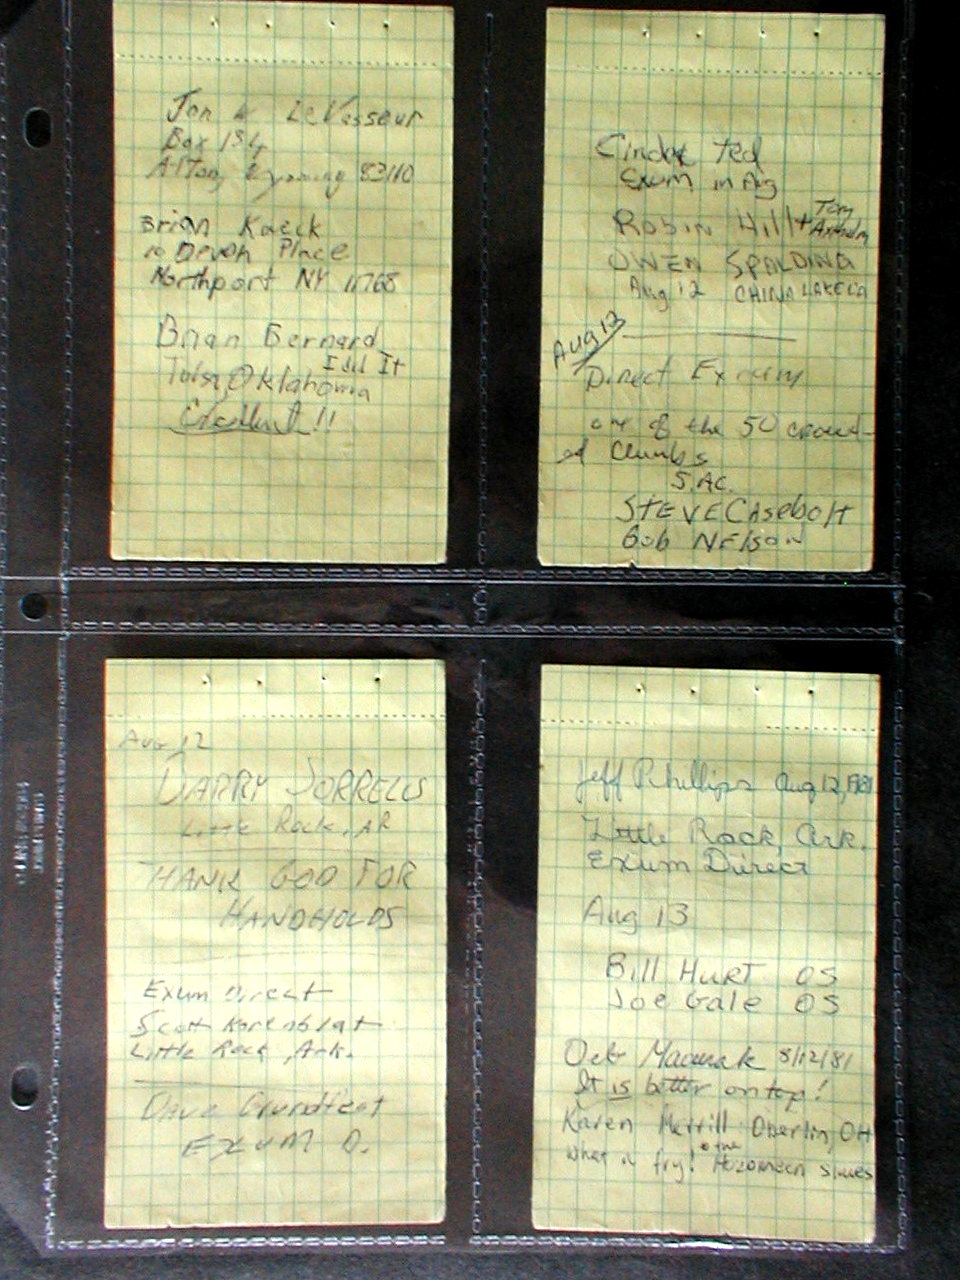 Jon W LeVasseur
Box 154
Afton, Wyoming 83110
Brian Kaeck
10 Devon Place
Northport NY 11768
Brian Bernard
I did It
Tulsa, Oklahoma
Excellent!!
Cindy Ted
Exum in Ag
Robin Hill + Tom
OWEN SPALDING
Aug 12 CHINA LAKE CA
Aug 12
Direct Exum
one of the 50 crowd-
ed Climbs
S.AC.
STEVE Casebolt
Bob Nelson
Aug 12
DARRY SORRELLS
Little Rock, AR
THANK GOD FOR
HANDHOLDS
Exum Direct
Scott Korenblat
Little Rock, Ark.
Dave Grundfest
EXUM D.
Jeff Phillips Aug 12, 1981
Little Rock, Ark.
Exum Direct
Aug 13
Bill HURT OS
Joe Gale OS
Deb 8/12/81
It is better on top!
Karen Merrill Oberlin, OH
What a fry! the